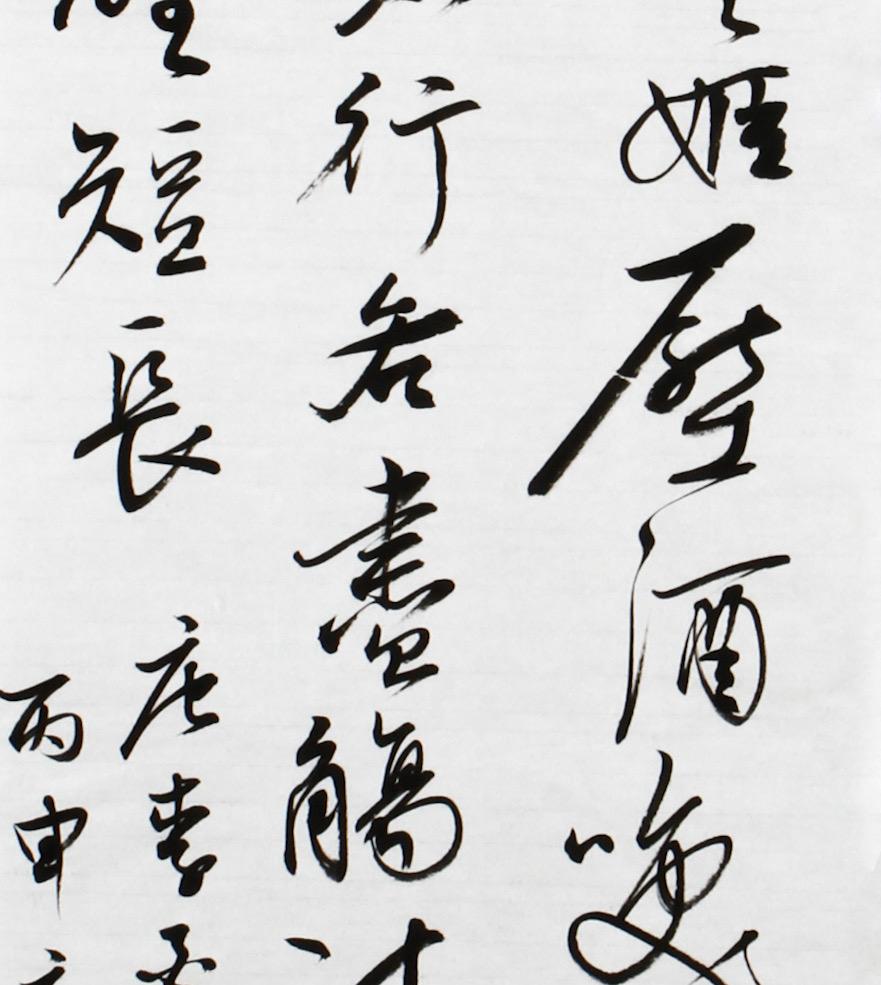 姬壓酒喚
行各盡觴
短長
唐李
丙申